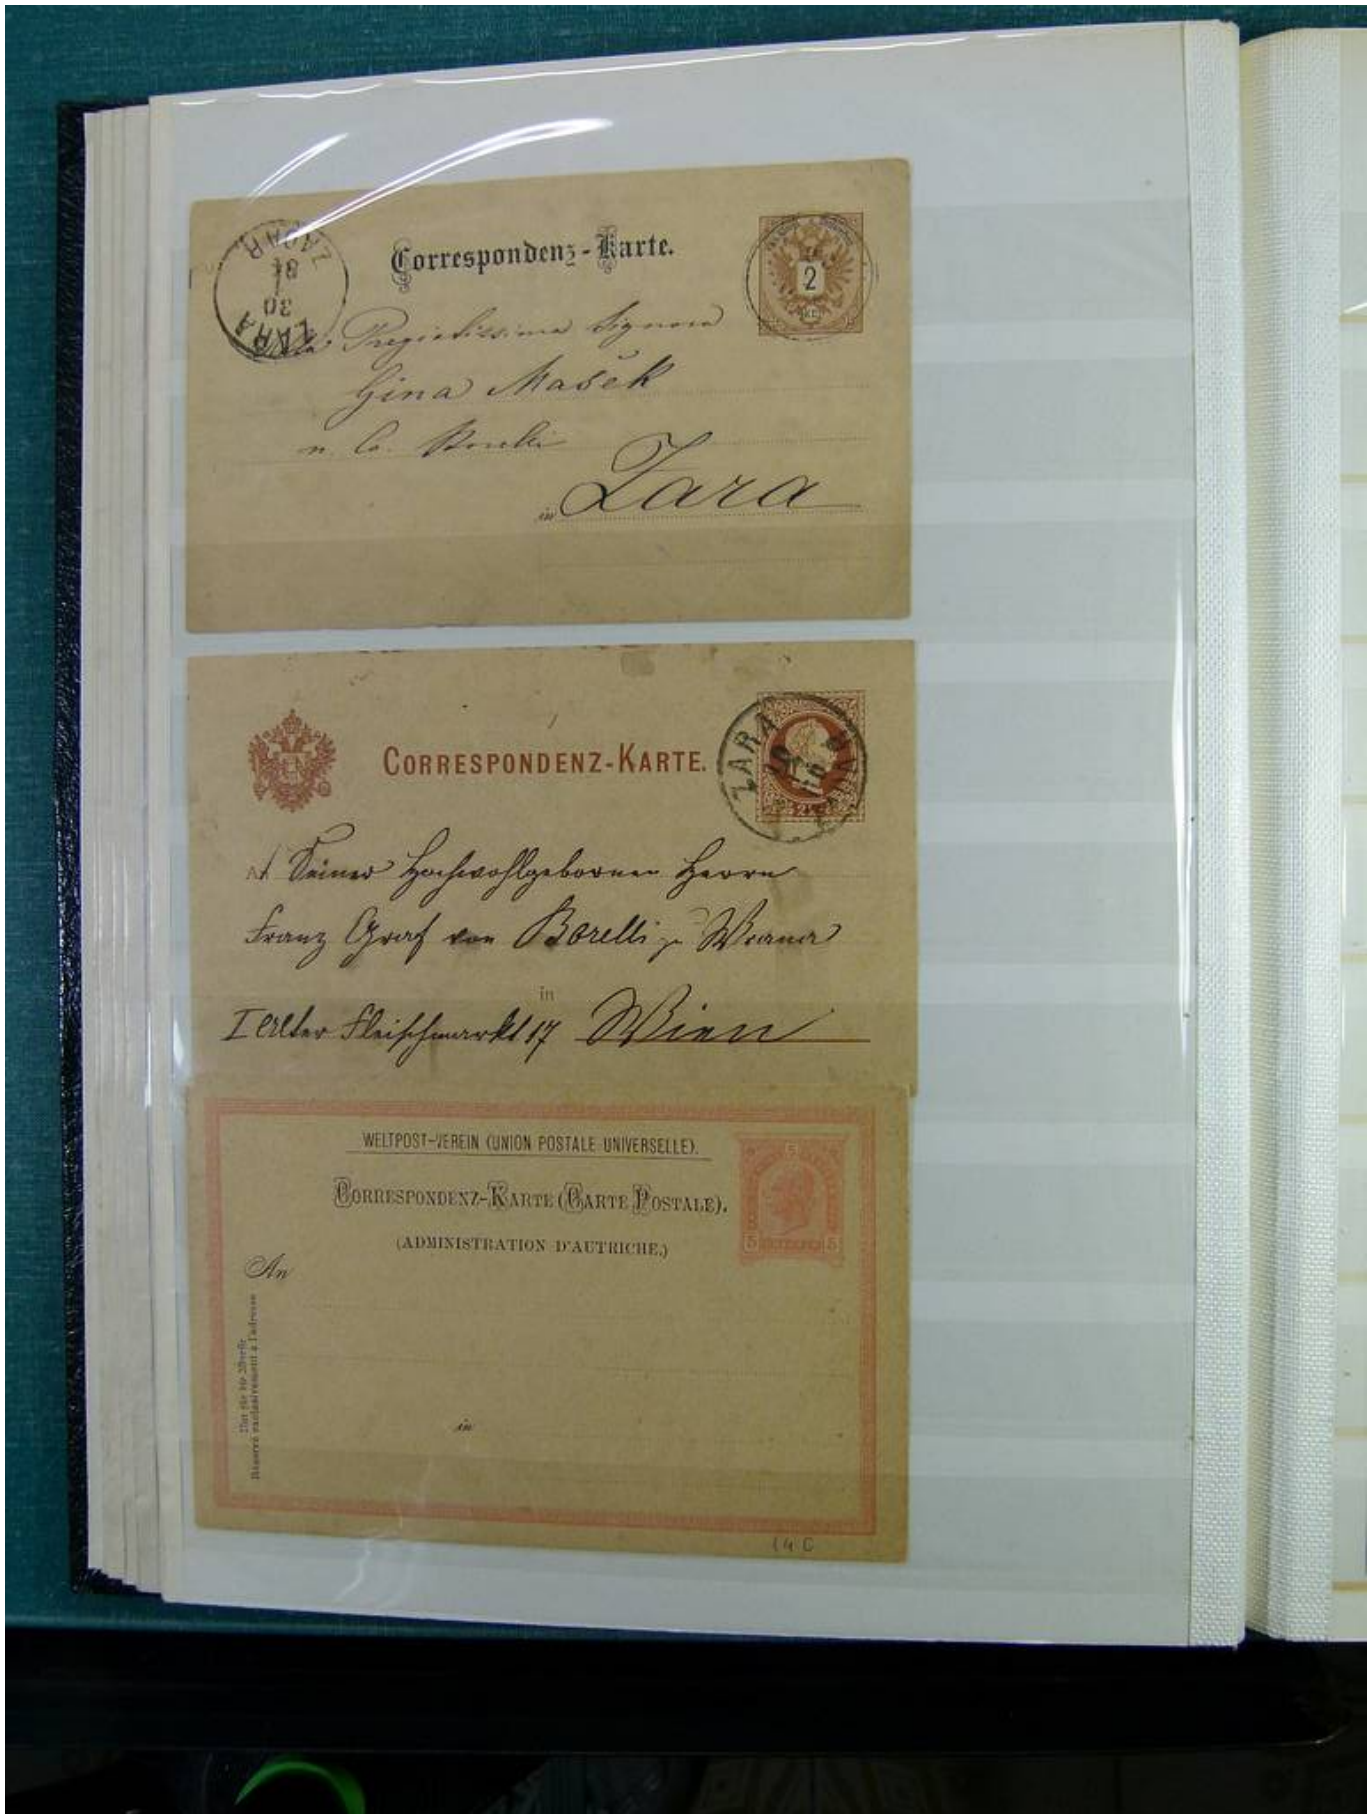 Correspondenz-Karte.
ZADAR
30
ZARA
2
Pregiatissima Signora
Gina Mašek
in Zara
CORRESPONDENZ-KARTE.
ZARA
ZADAR
Seiner Hochwohlgebornen Herrn
Franz Graf von Borelli zu Wrana
in
I Alter Fleischmarkt 17 Wien
WELTPOST-VEREIN (UNION POSTALE UNIVERSELLE).
CORRESPONDENZ-KARTE (CARTE POSTALE).
(ADMINISTRATION D'AUTRICHE.)
5
5 5
An
Nur für die Adresse
Réservé exclusivement à l'adresse
in